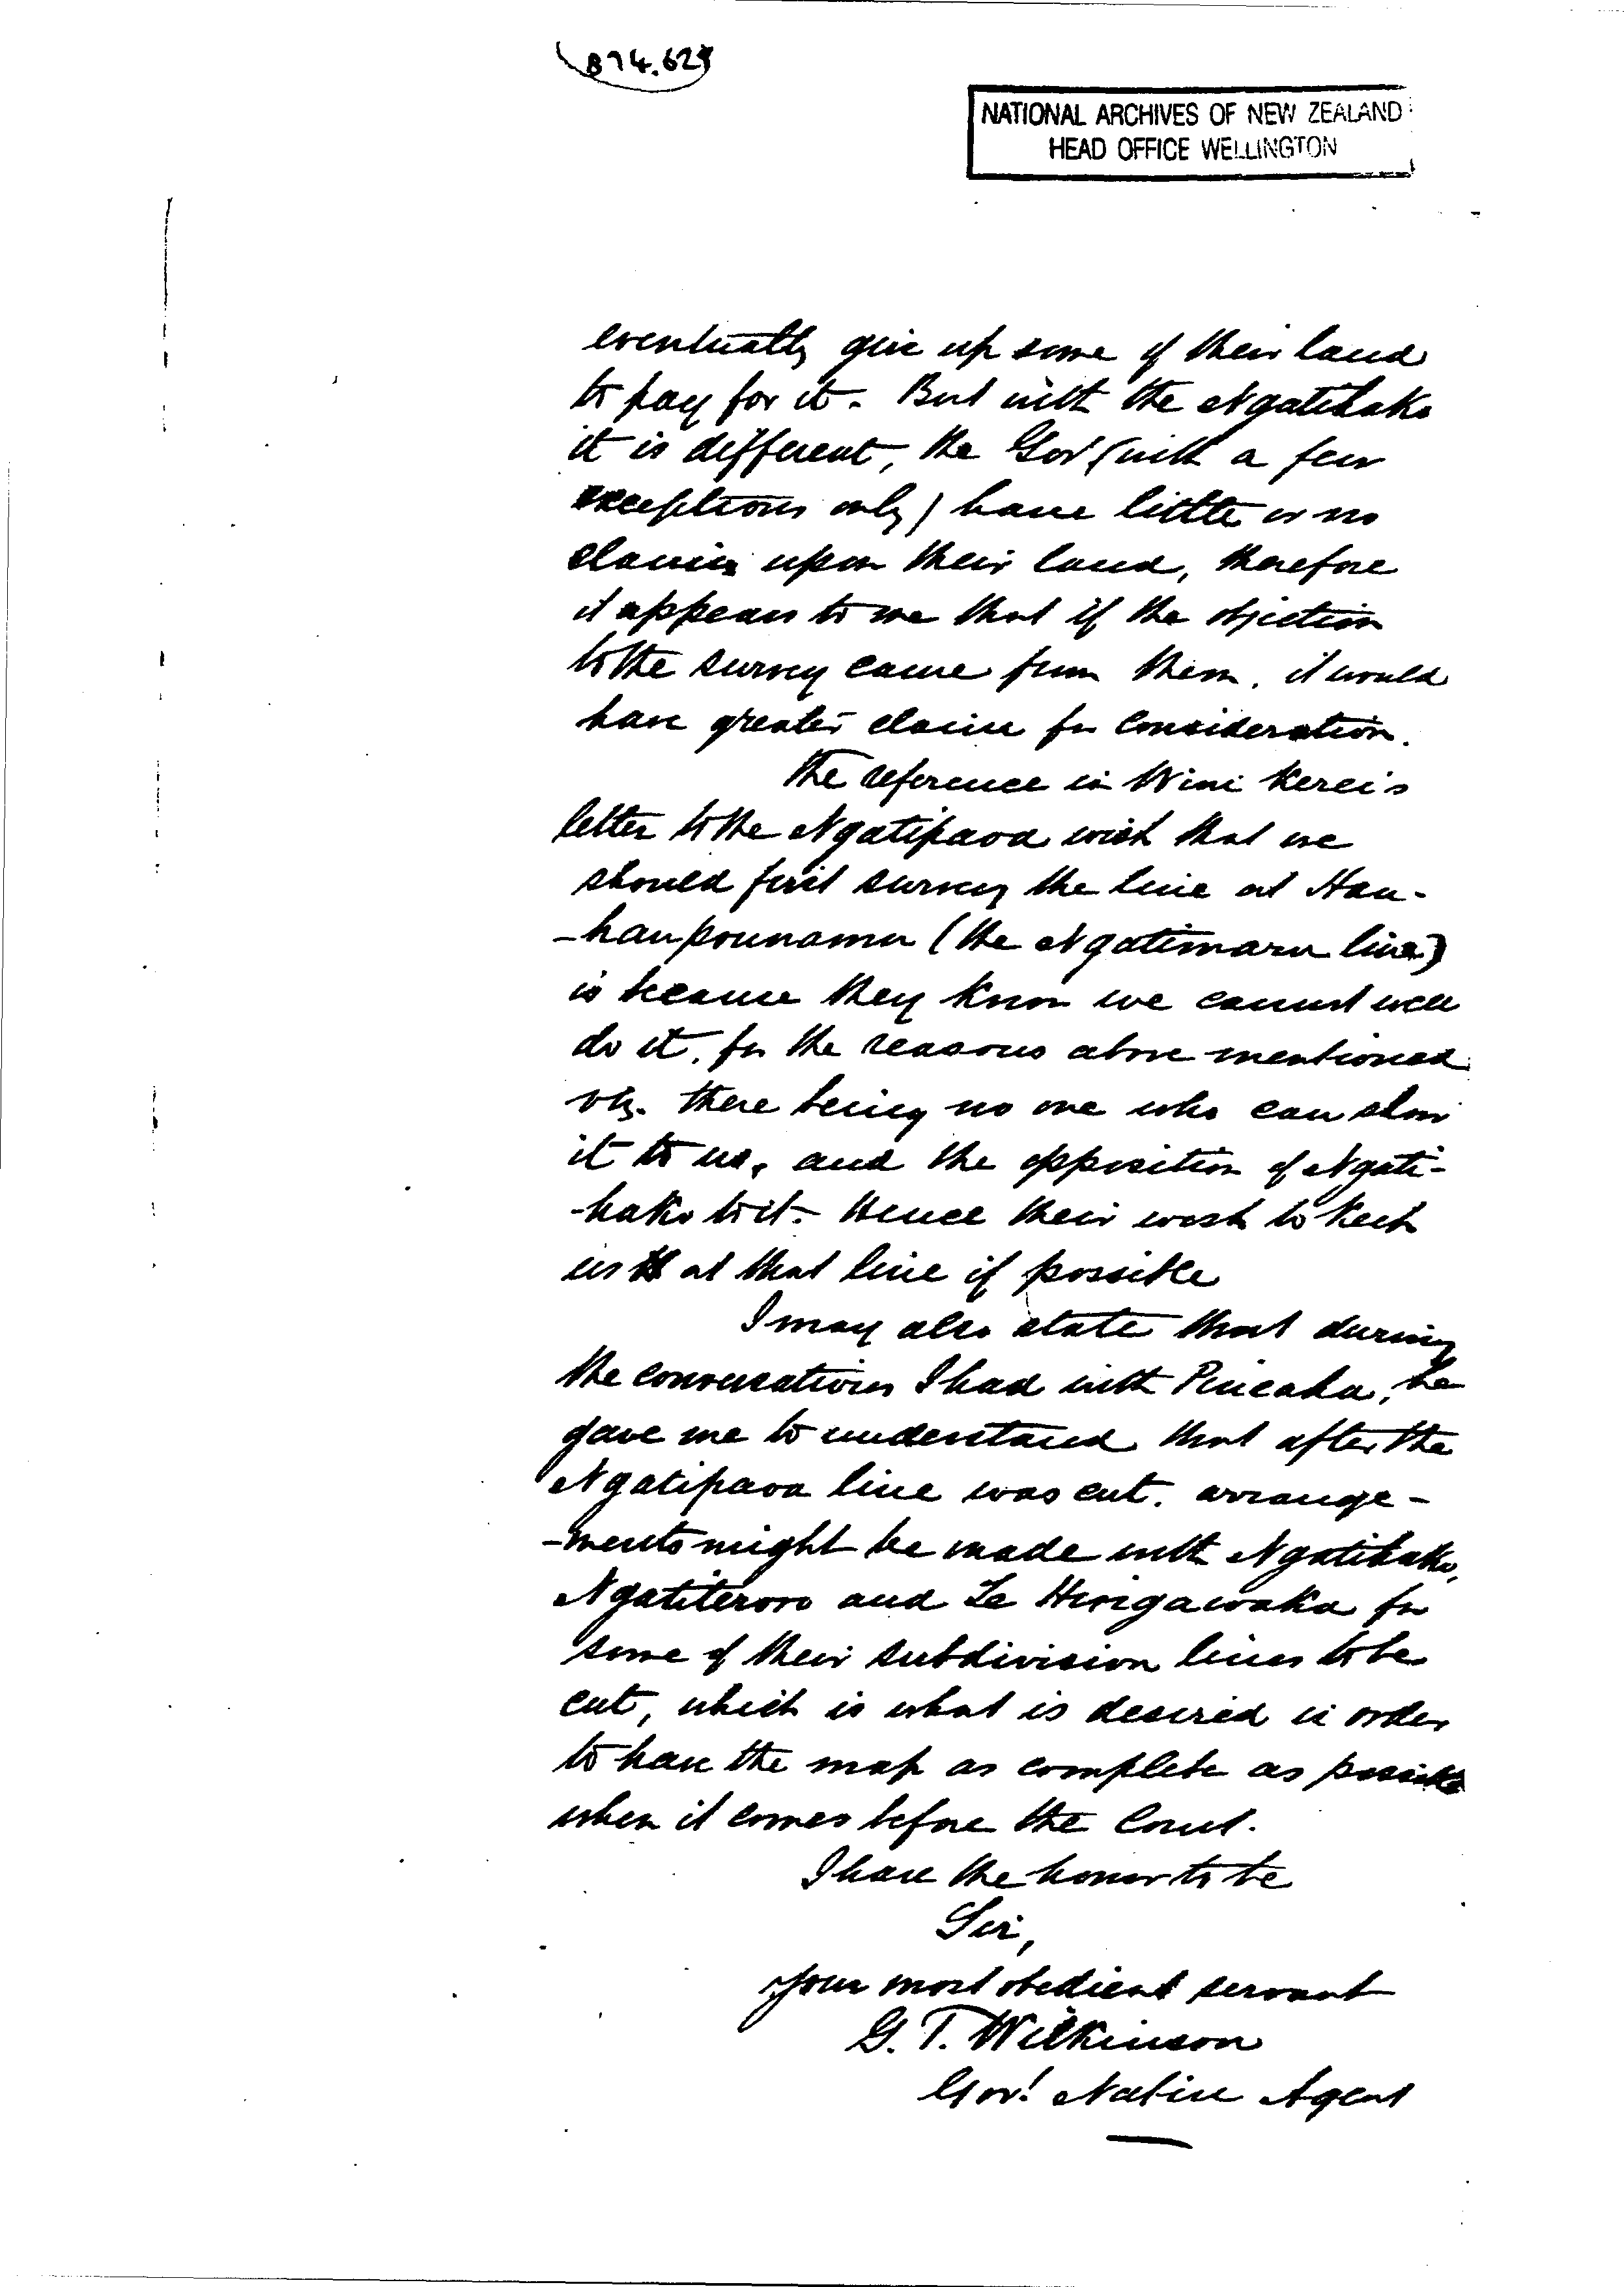 B74.628
NATIONAL ARCHIVES OF NEW ZEALAND
HEAD OFFICE WELLINGTON
eventually give up some of their land
to pay for it. But with the Ngatihako
it is different, the Govt (with a few
exceptions only) have little or no
claim upon their land, therefore
it appears to me that if the objection
to the survey came from them, it would
have greater claim for consideration.
The reference in Wini Kerei's
letter to the Ngatipaoa wish that we
should first survey the line at Hau-
-haupounamu (the Ngatimaru line)
is because they know we cannot well
do it, for the reasons above mentioned
viz. there being no one who can show
it to us, and the opposition of Ngati-
-hako to it. Hence their wish to keep
us at that line if possible
I may also state that during
the conversations I had with Pineaha, he
gave me to understand that after the
Ngatipaoa line was cut, arrange-
-ments might be made with Ngatihako,
Ngatiteroro and Te Hiringawaka for
some of their subdivision lines to be
cut, which is what is desired in order
to have the map as complete as possible
when it comes before the Court.
I have the honor to be
Sir,
Your most obedient servant
G. T. Wilkinson
Govt Native Agent